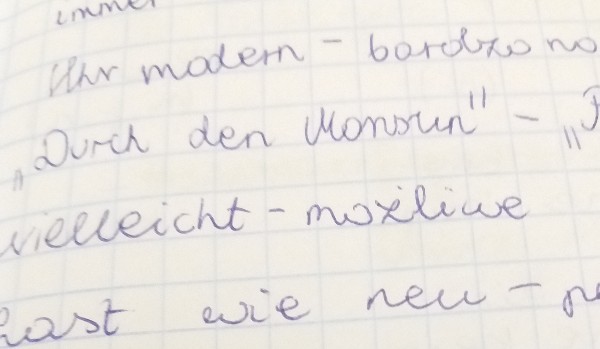 immer
Uhr modern - bardzo no
„Durch den Monsun" - „P
vielleicht - możliwe
wie neu -